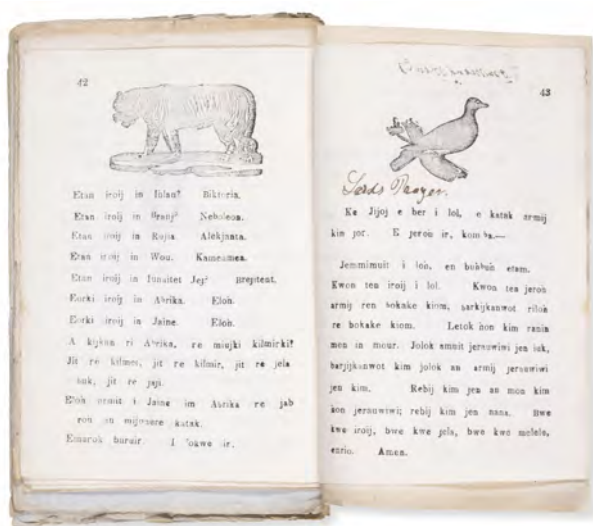 42
Etan iroij in Iñlan? Biktoria.
Etan iroij in Branj? Neboleon.
Etan iroij in Rujia. Alekjanta.
Etan iroij in Wou. Kameamea.
Etan iroij in Iunaitet Jej? Brejitent.
Eorki iroij in Abrika. Eloñ.
Eorki iroij in Jaine. Eloñ.
A kijkan ri Abrika, re miujki kilmirki?
Jit re kilmei, jit re kilmir, jit re jela
buk, jit re jaji.
Eloñ armij i Jaine im Abrika re jab
roñ an mijinere katak.
Emarok buruir. I lokwe ir.
43
Lords Prayer.
Ke Jijoj e ber i lol, e katak armij
kin jor. E jeroñ ir, kom ba.—
Jemmimuit i loñ, en buhbuh etam.
Kwon ten iroij i lol. Kwon ten jeroñ
armij ren bokake kiom, barkijkanwot riloñ
re bokake kiom. Letok ñon kim rania
men in mour. Jolok amuit jerawiwi jen kik,
barjijkanwot kim jolok an armij jerawiwi
jen kim. Rebij kim jen an mon kim
ñon jerawiwi; rebij kim jen nana. Bwe
kwe iroij, bwe kwe jela, bwe kwe melele,
enrio. Amen.